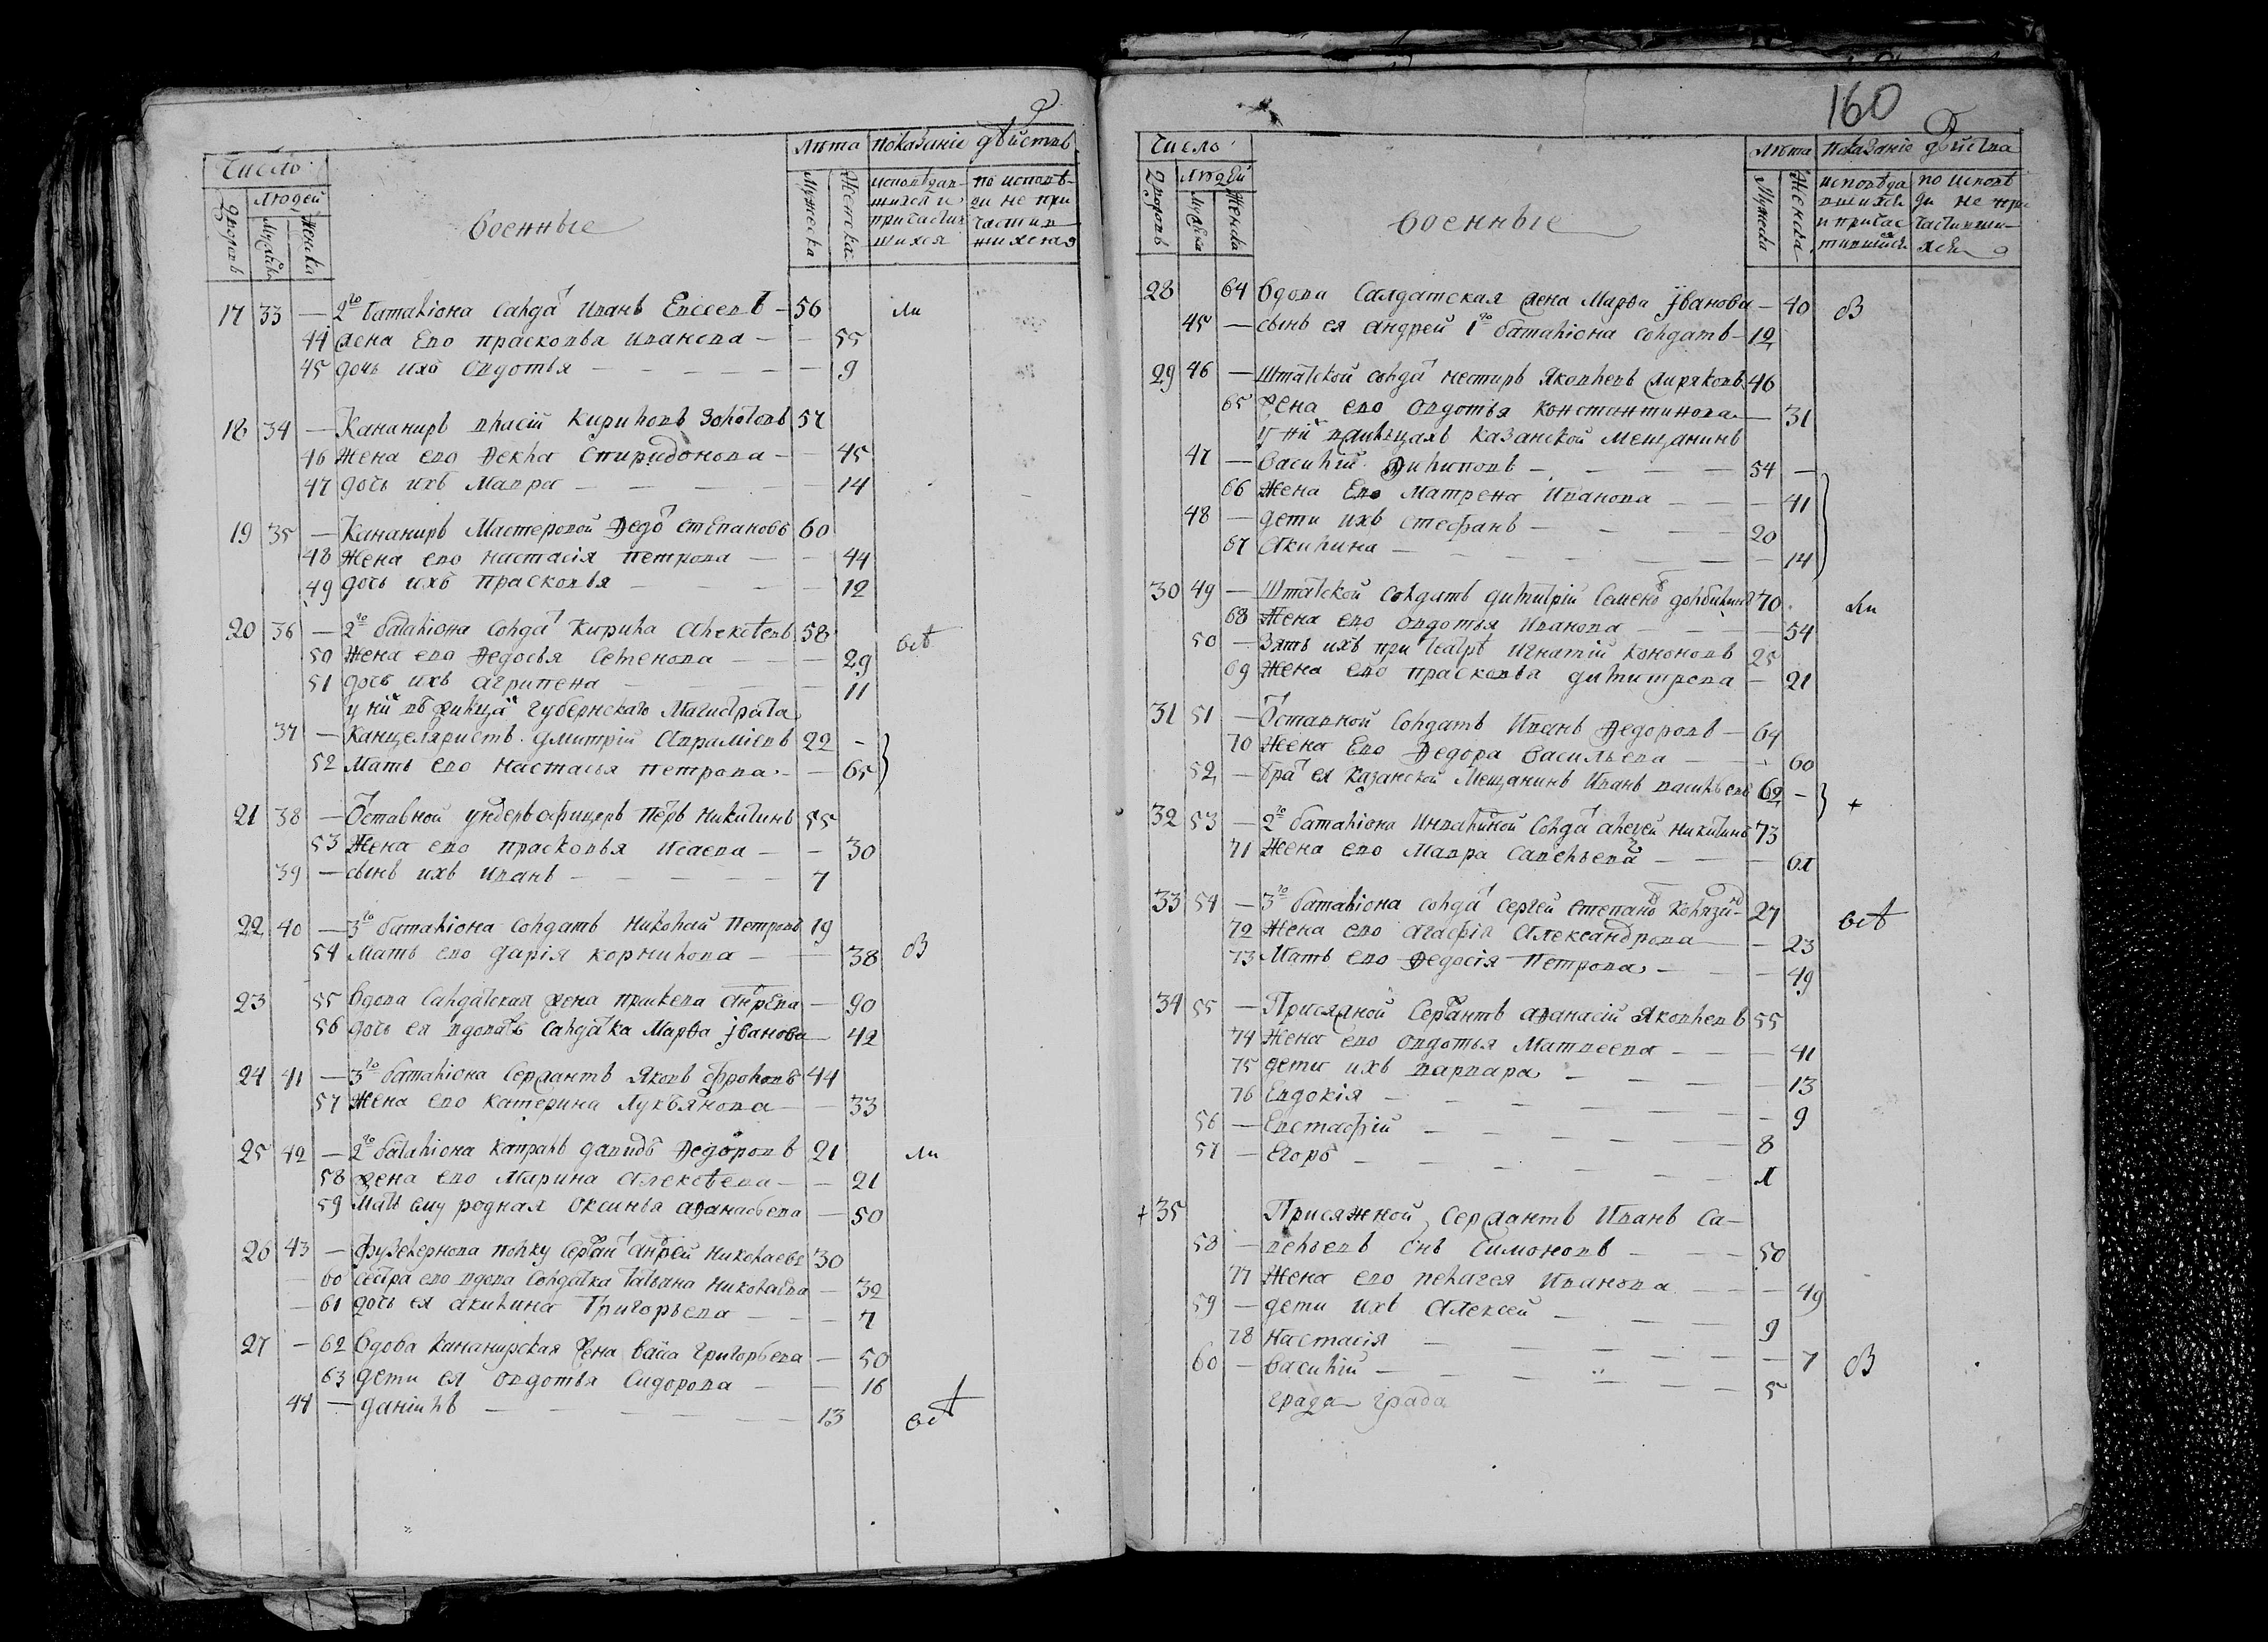 Число
Людей
Дворовъ
Мужеска
Женска
военные
Лѣта
Мужеска
Женска
Показаніе дѣйствъ
исповѣдав-
шихся и
причастив
шихся
по исповѣ-
ди не при
частив
шихся
17 33 — 2го баталіона солдат Иванъ Евсеевъ — 56 ли
44 жена Его прасковья иванова — — 55
45 дочь ихъ овдотья — — 9
18 34 — Кананиръ власій Кириловъ Золотовъ 57
46 Жена его Ѳекла Спиридонова — — 45
47 дочь ихъ Мавра — — 14
19 35 — Кананиръ Мастеровой Ѳедо стЕпановъ 60
48 Жена его настасія петрова — — 44
49 дочь ихъ прасковья — — 12
20 36 — 2го баталіона солдат Кирила алексѣевъ 58 всѣ
50 Жена его Ѳедосья Семенова — — 29
51 дочь ихъ агрипена — 11
у ни въ жилца губернскаго Магистрата
37 — Канцеляристъ дмитрій Авраміевъ 22 —
52 Мать его настасья петрова — — 65
21 38 — Оставной ундеръ афицеръ Петръ никитинъ 55
53 Жена его прасковья Исаева — — 30
39 — сынъ ихъ иванъ — 7
22 40 — 3го баталіона солдатъ николай Петровъ 19
54 Мать его дарія корнилова — — 38 В
23 55 вдова салдатская жена праскева андреева — 90
56 дочь ея вдова салдатка Марѳа іванова — 42
24 41 — 3го баталіона сержантъ Яковъ фроловъ 44
57 Жена его катерина Лукьянова — — 33
25 42 — 2го баталіона капралъ давидъ Ѳедоровъ 21 ли
58 жена его Марина Алексѣева — — 21
59 мать ему родная оксинья аѳанасьева — 50
26 43 — фузелернова полку сержан андрей николаевъ 30
— 60 сестра его вдова солдатка татьяна николаева — 32
— 61 дочь ея акилина Григорьева — — 7
27 — 62 вдова кананирская жена васа григорьева — 50
63 дети ея овдотья Сидорова — — 16
44 — данилъ — 13 всѣ
160
Число
Людей
Дворовъ
Мужска
Женска
военные
Лѣта
Мужеска
Женска
Показаніе дѣйства
исповѣда
вшихся
и причас
тившихся
по исповѣ
ди не при
частивши—
яся
28 64 вдова Салдатская жена Марѳа іванова — 40 В
45 — сынъ ея андрей 1го баталіона солдатъ — 12
29 46 — Штатской солдат нестиръ Яковлевъ 46
65 жена его овдотья константинова — 31
у ни в жилцахъ казанской мещанинъ
47 — василій Филиповъ — 54 —
66 Жена Его Матрена Иванова — — 41
48 — дети ихъ стефанъ — 20
67 Акилина — — 14
30 49 — Штатской солдатъ димитрій Семенов 70 ли
68 Жена его овдотья Иванова — 54
50 — Зять ихъ при театрѣ игнатій кононовъ 25
69 Жена его прасковья димитрева — 21
31 51 — Оставной солдатъ Иванъ Ѳедоровъ — 64
70 Жена Его Ѳедора васильева — — 60
52 — брат ея казанской мещанинъ Иванъ васильевъ 62 — +
32 53 — 2го баталіона инвалидной солдат алексей никитинъ 73
71 Жена его Мавра Савельева — — 61
33 54 — 3го баталіона солдат сергей степанов 27 всѣ
72 Жена его агафія Александрова — 23
73 Мать его Ѳедосія Петрова — — 49
34 55 — Присяжной сержантъ аѳанасій Яковлевъ 55
74 Жена его овдотья Матвеева — — 41
75 дети ихъ варвара — — 13
76 Евдокія — — 9
56 — Евстафій — 8
57 — Егоръ — 1
+ 35 Присяжной сержантъ Иванъ Са—
58 — вельевъ снъ Симоновъ — 50
77 Жена его пелагея Иванова — — 49
59 — дети ихъ Алексей — 9
78 Настасія — — 7 В
60 — василій — 5
града града